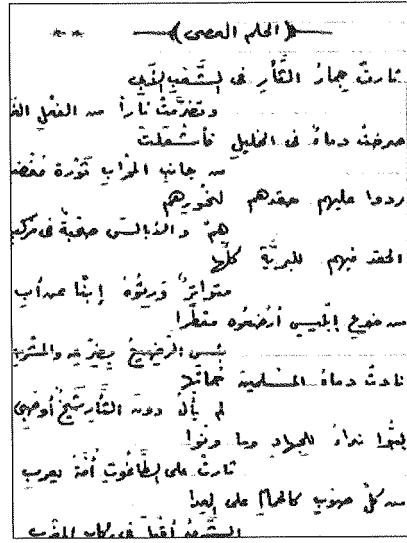 الحلم العصي
ثارتْ جِمارُ الثَّأرِ في الشَّعبِ الأبي
وتضرَّمتْ ناراً من الفعلِ
صرختْ دماءٌ في الخليلِ فأشعلتْ
من جانبِ المحرابِ ثَوْرةَ
ردوا عليهم حقدهم لنحورِهم
هم والأبالس صُحْبةٌ في مركبِ
الحقد فيهم للبريَّةِ كلِّها
متواترٌ وَرِثُوهُ إبْناً عن أبِ
من ضرعِ إبليسٍ أُرْضِعُوه مقطَّراً
بئس الرضيعُ
نادتْ دماءُ المسلمينَ حُماتَها
لم يألُ دون الثَّأرِ شيخٌ أو صبي
لبُّوا نداءً للجهادِ وما ونوا
ثارتْ على الطَّاغوتِ أمَّةُ يعربِ
من كلِّ صوبٍ كالحمامِ على العدا
الشَّرقُ أقبلَ في ركابِ المغربِ